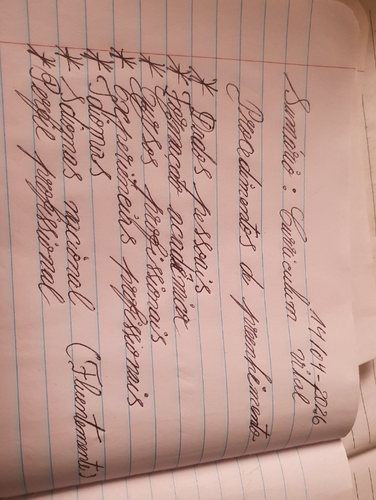 14/04-2026
Sumário: Curriculum Vital
Procedimentos de preenhimento
* Dados pessoais
* Formação académica
* Cursos profissionais
* Experiências profissionais
* Idiomas
* Idiomas nacional (Fluentemente)
* Perfil profissional